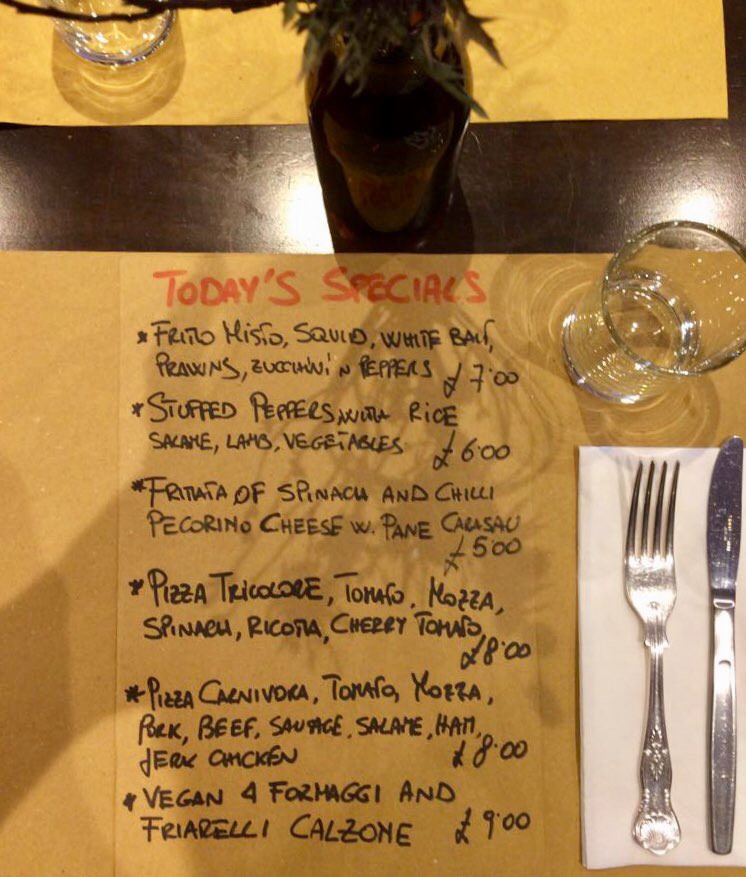 TODAY'S SPECIALS
* FRITTO MISTO, SQUID, WHITE BAIT,
PRAWNS, ZUCCHINI 'N PEPPERS £ 7.00
* STUFFED PEPPERS WITH RICE
SALAME, LAMB, VEGETABLES £ 6.00
* FRITTATA OF SPINACH AND CHILLI
PECORINO CHEESE W. PANE CARASAU
£ 5.00
* PIZZA TRICOLORE, TOMATO, MOZZA,
SPINACH, RICOTTA, CHERRY TOMATO
£8.00
* PIZZA CARNIVORA, TOMATO, MOZZA,
PORK, BEEF, SAUSAGE, SALAME, HAM,
JERK CHICKEN £ 8.00
* VEGAN 4 FORMAGGI AND
FRIARELLI CALZONE £ 9.00